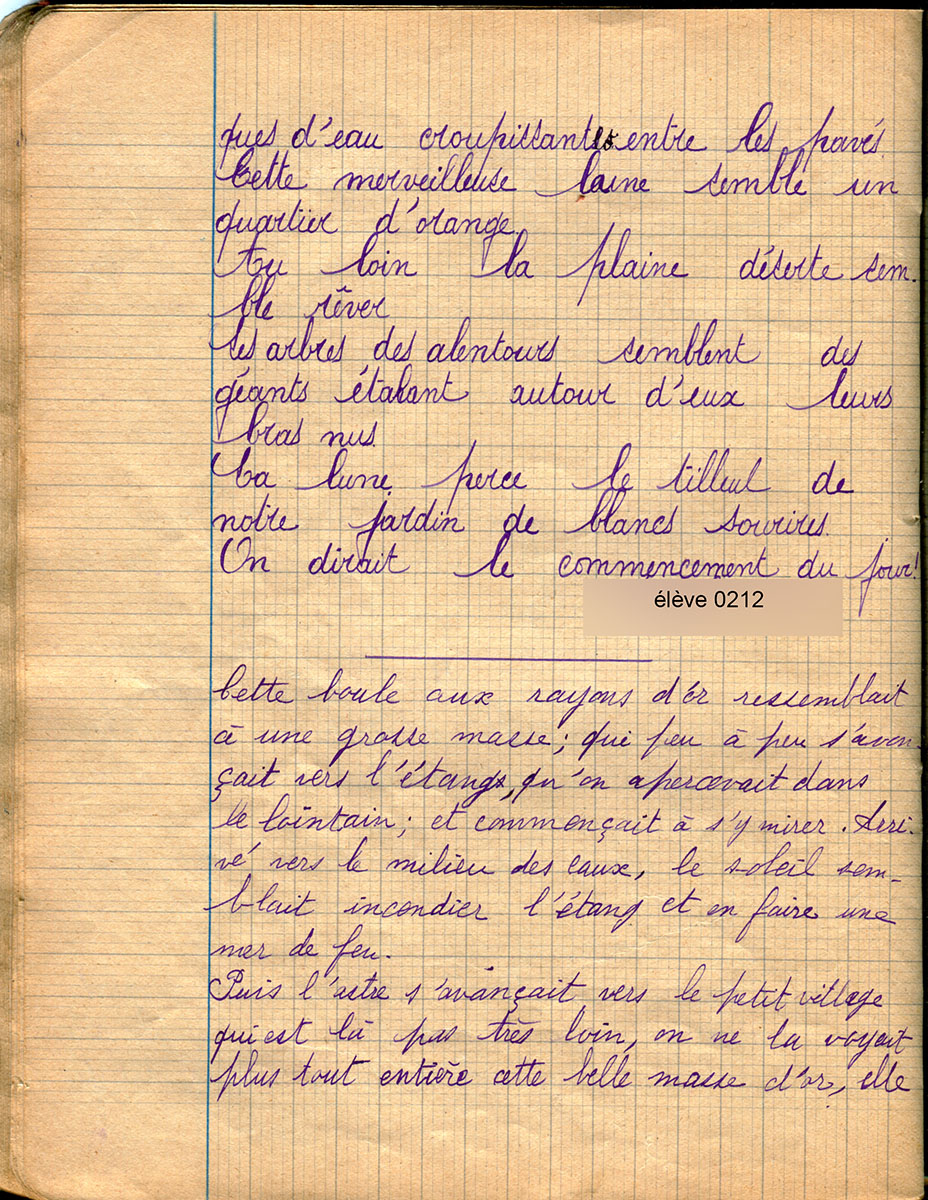 ques d'eau croupissantes entre les pavés.
Cette merveilleuse laine semble un
quartier d'orange.
Au loin la plaine déserte sem-
ble rêver
Les arbres des alentours semblent des
géants étalant autour d'eux leurs
bras nus.
La lune perce le tilleul de
notre jardin de blancs sourires.
On dirait le commencement du jour!
élève 0212
Cette boule aux rayons d'or ressemblait
à une grosse masse; qui peu à peu s'avan-
çait vers l'étangs, qu'on apercevait dans
le lointain; et commençait à s'y mirer. Arri-
vé vers le milieu des eaux, le soleil sem-
blait incendier l'étang et en faire une
mer de feu.
Puis l'astre s'avançait vers le petit village
qui est là pas très loin, on ne la voyait
plus tout entière cette belle masse d'or, elle